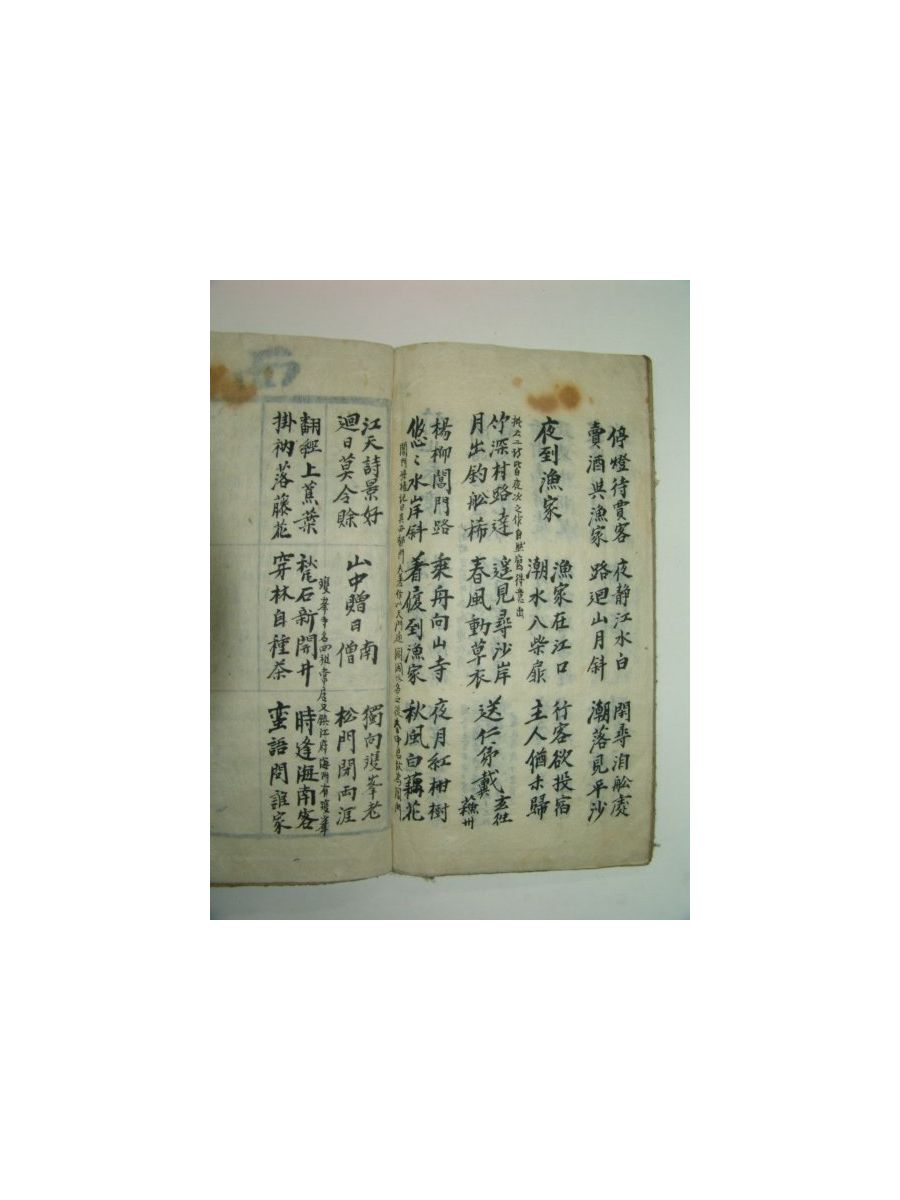 停燈待賈客
賣酒與漁家
夜静江水白
路迴山月斜
閑尋泊舩處
潮落見平沙
夜到漁家
漁家在江口
潮水入柴扉
行客欲投宿
主人猶未歸
竹深村路遠
月出釣舩稀
遙見尋沙岸
春風動草衣
送從弟戴玄往蘇州
楊柳閶門路
悠〻水岸斜
乘舟向山寺
着屐到漁家
夜月紅柑樹
秋風白藕花
江天詩景好
迴日莫令賖
山中贈日南僧
獨向雙峯老
松門閉兩涯
翻經上蕉葉
掛衲落藤花
甃石新開井
穿林自種茶
時逢海南客
蛮語問誰家